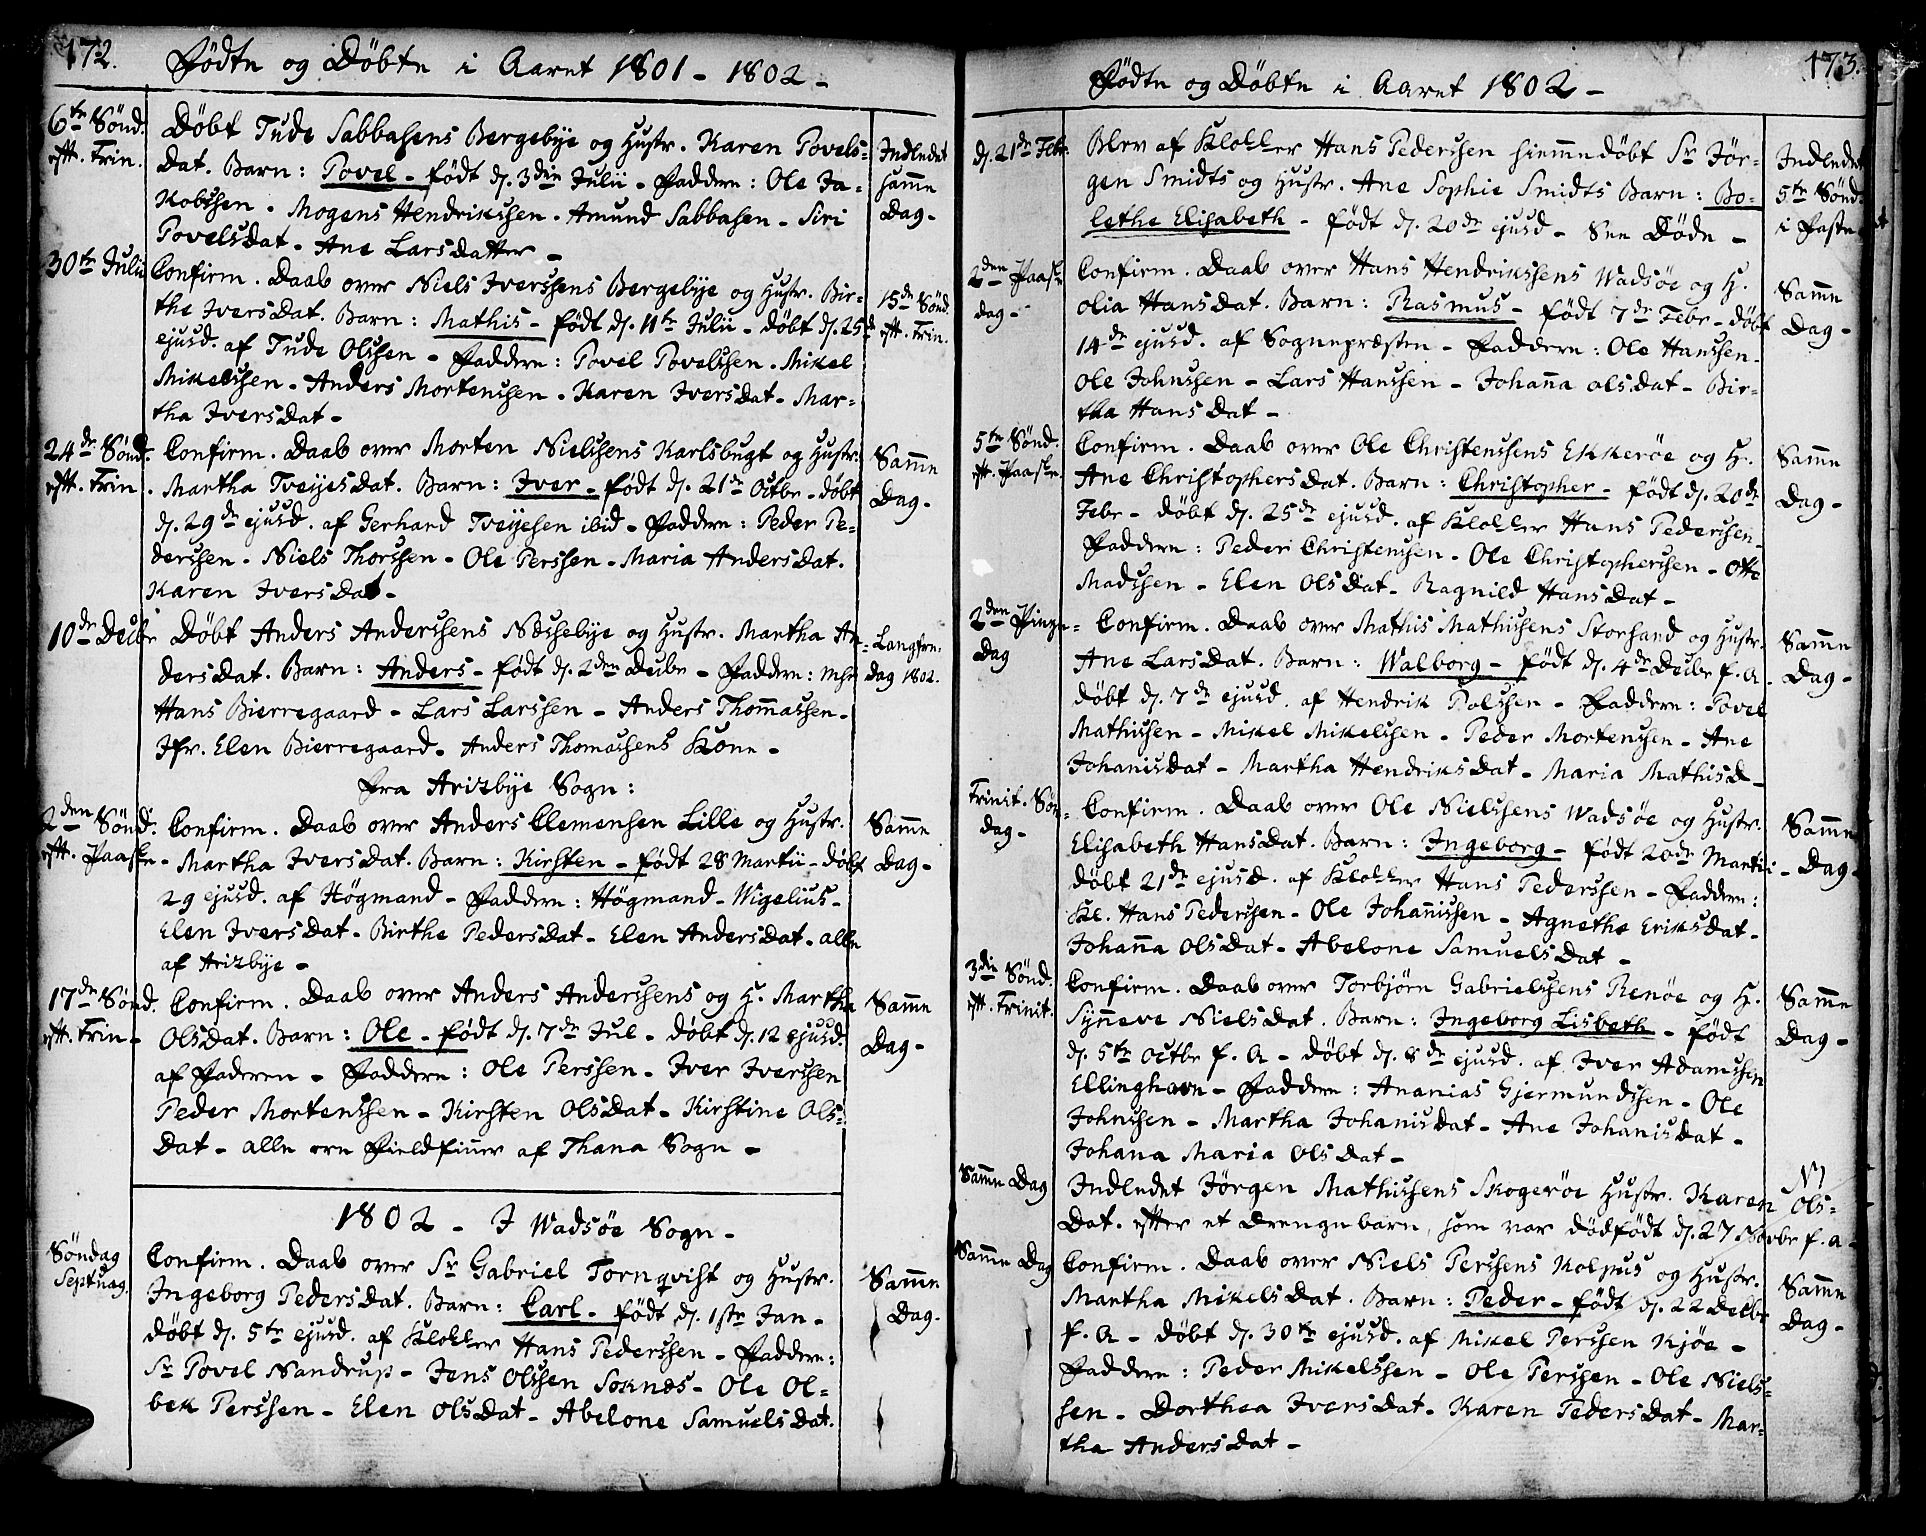 172.
Fødte og Döbte i Aaret 1801 - 1802 -
6te Sönd. eft. Trin.
Döbt Tude Sabbasens Bergebÿe og Hustr. Karen Povels-
Dat. Barn: Povel - födt d. 3die Julii - Faddere: Ole Ja-
Kobssen - Mogens Hendrikssen - Amund Sabbasen - Siri
Povelsdat - Ane Larsdatter -
Indledet
samme
Dag -
30te Julii
Confirm. Daab over Niels Iverssens Bergebÿe og Hustr. Bir-
the IversDat. Barn: Mathis - födt d. 11te Julii - döbt d. 25de
ejusd. af Tude Olssen - Faddere: Povel Povelssen - Mikel
Mikelssen - Anders Mortenssen - Karen IversDat - Mar-
tha IversDat -
15de Sönd.
eft. Trin.
24de Sönd.
eft. Trin.
Confirm. Daab over Morten Nielssens Karlsbugt og Hustr.
Martha TveÿesDat. Barn: Iver - födt d. 21de Octbr - döbt
d. 29de ejusd. af Gerhard Tveÿesen ibid - Faddere: Peder Pe-
derssen - Niels Thorssen - Ole Perssen - Maria AndersDat.
Karen IversDat -
Samme
Dag -
10de Decbr
Döbt Anders Anderssens Næssebÿe og Hustr. Martha An-
dersDat. Barn: Anders - födt d. 2den Decbr - Faddere: Mhr
Hans Bierregaard - Lars Larssen - Anders Thomassen -
Jfr. Elen Bierregaard - Anders Thomassens Kone -
Langfre-
dag 1802.
Fra Arizbÿe Sogn:
2den Sönd.
eft. Paaske -
Confirm. Daab over Anders Clemensen Lille og Hustr.
Martha IversDat. Barn: Kirsten - födt 28 Martii - döbt
29 ejusd. af Högmand - Faddere: Högmand - Wigelius -
Elen IversDat - Birthe PedersDat - Elen AndersDat - alle
af Arizbÿe -
Samme
Dag -
17de Sönd.
eft. Trin -
Confirm. Daab over Anders Anderssens og H. Martha
OlsDat. Barn: Ole - födt d. 7de Jul - döbt d. 12 ejusd.
af Faderen - Faddere: Ole Perssen - Iver Iverssen
Peder Mortenssen - Kirsten OlsDat - Kirstine Ols-
Dat - alle ere Fieldfinner af Thana Sogn -
Samme
Dag -
1802 - I Wadsöe Sogn -
Söndag
Septuag.
Confirm. Daab over Sr Gabriel Tornqvist og Hustr.
Ingeborg PedersDat. Barn: Carl - födt d. 1ste Jan -
döbt d. 5te ejusd. af Klokker Hans Pederssen - Faddere:
Sr Povel Nandrup - Jens Olssen Soknæs - Ole Ol-
bek Perssen - Elen OlsDat - Abelone SamuelsDat.
Samme
Dag -
173.
Fødte og Döbte i Aaret 1802 -
d. 21de Febr.
Blev af Klokker Hans Pederssen hiemmedöbt Sr Jör-
gen Smidts og Hustr. Ane Sophie Smidts Barn: Bo-
lethe Elisabeth - födt d. 20de ejusd - See Döde -
Indledet
5te Sönd.
i Faste
2den Paaske
dag -
Confirm. Daab over Hans Hendrikssens Wadsöe og H.
Olia HansDat. Barn: Rasmus - födt 7de Febr - döbt
14de ejusd. af Sognepræsten - Faddere: Ole Hanssen -
Ole Johnssen - Lars Hanssen - Johanna OlsDat - Bir-
tha HansDat -
Samme
Dag -
5te Sönd.
eft. Paaske
Confirm. Daab over Ole Christenssens Ekkeröe og H.
Ane ChristophersDat. Barn: Christopher - födt d. 20de
Febr - döbt d. 25de ejusd. af Klokker Hans Pederssen -
Faddere: Peder Christenssen - Ole Christopherssen - Otte
Madssen - Elen OlsDat - Ragnild HansDat -
Samme
Dag -
2den Pinze-
Dag
Confirm. Daab over Mathis Mathissens Storsand og Hustr.
Ane LarsDat. Barn: Walborg - födt d. 4de Decbr f. A.
döbt d. 7de ejusd. af Hendrik Polssen - Faddere: Povel
Mathissen - Mikel Mikelssen - Peder Mortenssen - Ane
JohanisDat - Martha HendriksDat - Maria MathisD -
Samme
Dag -
Trinit. Søn-
dag -
Confirm. Daab over Ole Nielssens Wadsöe og Hustr.
Elisabeth HansDat. Barn: Ingeborg - födt 20de Martii -
döbt 21de ejusd. af Klokker Hans Pederssen - Faddere:
Kl. Hans Pederssen - Ole Johannissen - Agnethe EriksDat -
Johanna OlsDat - Abelone SamuelsDat -
Samme
Dag -
3die Sönd.
eft. Trinit.
Confirm. Daab over Torbjörn Gabrielssens Renöe og H.
Synneve NielsDat. Barn: Ingeborg Lisbeth - födt
d. 5te Octbr f. A - döbt d. 8de ejusd. af Iver Adamssen
Ellinghavn - Faddere: Ananias Gjermundssen - Ole
Johnssen - Martha JohanisDat - Ane JohanisDat -
Johana Maria OlsDat -
Samme
Dag -
Samme Dag
Indledet Jörgen Mathissens Skogeröe Hustr. Karen Ols-
Dat. efter et Drengebarn, som var dödfödt d. 27 Novbr f. a -
Samme Dag
Confirm. Daab over Niels Perssens Kolpus og Hustr.
Martha MikelsDat. Barn: Peder - födt d. 22 Decbr
f. A - döbt d. 30te ejusd. af Mikel Perssen Kjöe -
Faddere: Peder Mikelssen - Ole Perssen - Ole Niels-
sen - Dorthea IversDat - Karen PedersDat - Mar-
tha AndersDat -
Samme
Dag -